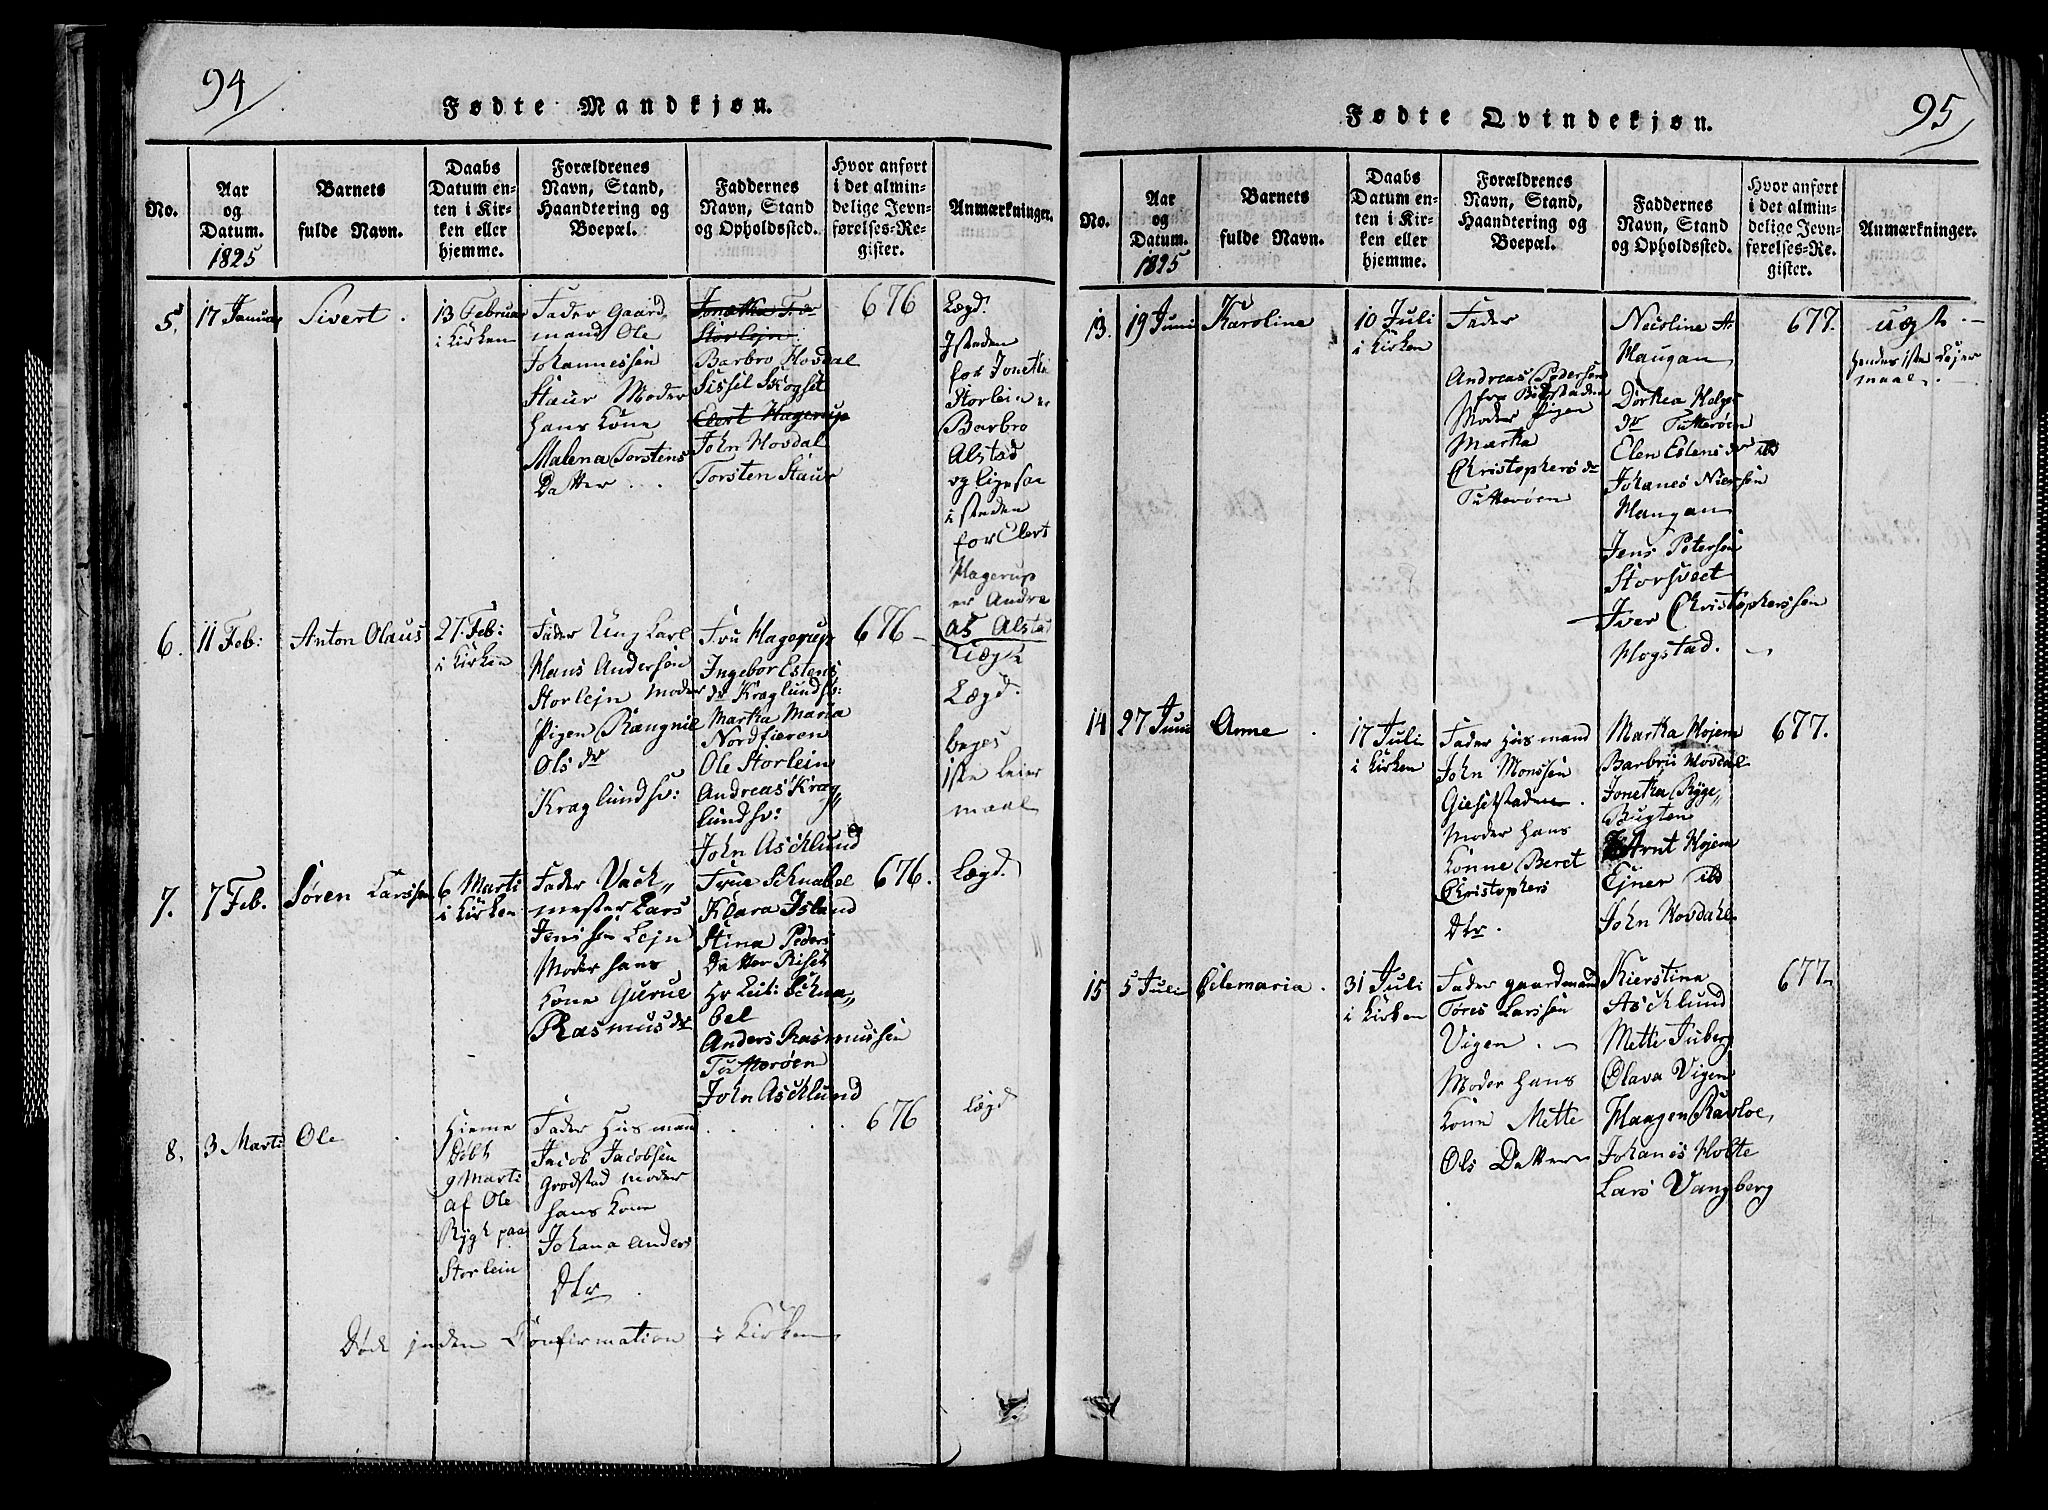 94
Fødte Mandkjøn.
No.
Aar
og
Datum.
1825
Barnets
fulde Navn.
Daabs
Datum en-
ten i Kir-
ken eller
hjemme.
Forældrenes
Navn, Stand,
Haandtering og
Boepæl.
Faddernes
Navn, Stand
og Opholdssted.
Hvor anført
i det almin-
delige Jevn-
førelses-Re-
gister.
Anmærkninger.
5.
17 Januar
Sivert.
13 Februar
i Kirken
Fader Gaard
mand Ole
Johannessen
Staur Moder
hans Kone
Malena Torstens
Datter
Jonetha F. dr
Storlejn
Barbro Hovdal
Sissel Skogset
Elert Hagerup
John Hovdal
Torsten Staur
676
Lægd.
Isteden
for Jonetha
Storlein er
Barbro
Alstad
og ligesaa
i steden
for Elert
Hagerup
er Andre
as Alstad
6.
11 Feb:
Anton Olaus
27 Feb:
i Kirken
Fader Ung Karl
Hans Andersen
Storlejn Moder
Pigen Rangnil
Ols dr
Kraglundsv:
Fru Hagerup
Ingebor Estens
dr Kraglundsv:
Martha Maria
Nordfieren
Ole Storlein
Andreas Krag„
lundsv:
John Ascklund
676 –
Uægt
Lægd.
beges
iste Leier
maal
7.
7 Feb.
Søren Larssen
6 Marti
i Kirken
Fader Vack„
mester Lars
Jenssen Lejn
Moder hans
Kone Gurue
Rasmusdr
Frue Schnabel
Klara Island
Stina Peders
Datter Riset
Hr Leit: Schna„
bel
Anders Rasmussen
Tutterøen
John Ascklund
676.
Lægd.
8.
3 Marti
Ole
Hieme
Døbt
9 Marti
af Ole
Rygh paa
Storlein
Fader Husmand
Jacob Jacobsen
Grodstad moder
hans Kone
Johana Anders
Dtr
676
Lægd
Døde inden Confirmation i Kirken
95
Fødte Qvindekjøn.
No.
Aar
og
Datum.
1825
Barnets
fulde Navn.
Daabs
Datum en-
ten i Kir-
ken eller
hjemme.
Forældrenes
Navn, Stand,
Haandtering og
Boepæl.
Faddernes
Navn, Stand
og Opholdssted.
Hvor anført
i det almin-
delige Jevn-
førelses-Re-
gister.
Anmærkninger.
13.
19 Juni
Karoline
10 Juli
i Kirken
Fader
Andreas Pedersen
fra Bidstaden
Moder Pigen
Martha
Christophers dr
Tutterøen
Nicoline A.
Haugan
Dorthea Helge
dr Tutterøen
Elen Estens dr ibd
Johanes Nielsen
Haugan
Jens Petersen
Storsveet
Iver Christophersen
Hogstad.
677.
uægte.
hendes iste Lejer
maal.
14
27 Juni
Anne
17 Juli
i Kirken
Fader Husmand
John Monssen
Gieselstaden.
Moder hans
Konne Beret
Christophers
Dtr.
Martha Hojem
Barbru Hovdal
Jonetha Ryge„
Bugten
Arnt Hojem
Ejner ibd
John Hovdahl
677.
15
5 Juli
Oilemaria.
31 Juli
i Kirken
Fader gaardmand
Tøres Larssen
Vigen.
Moder hans
Kone Mette
Ols Datter
Kierstina
Ascklund
Mette Juberg
Olava Vigen
Haagen Ravloe,
Johanes Holte
Lars Vangberg
677.